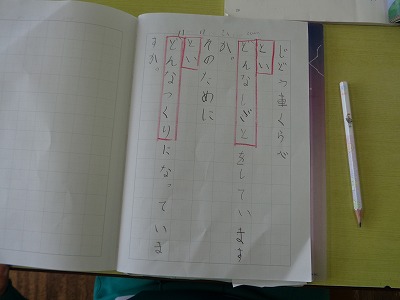 じどう車くらべ
とい
どんなしごとをしています
か。
そのために
とい
どんなつくりになっていま
すか。